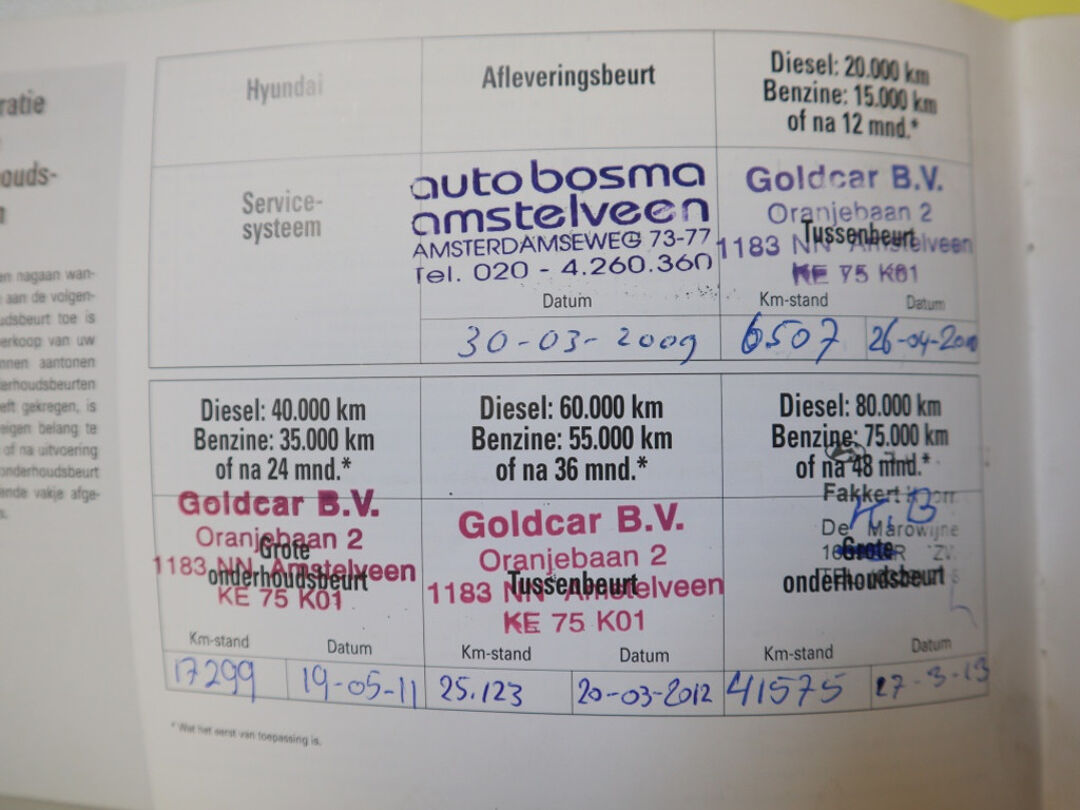 ratie
ouds-
en nagaan wan-
aan de volgen-
udsbeurt toe is
erkoop van uw
nnen aantonen
erhoudsbeurten
eft gekregen, is
eigen belang te
of na uitvoering
onderhoudsbeurt
ende vakje afge-
s.
Hyundai
Afleveringsbeurt
Diesel: 20.000 km
Benzine: 15.000 km
of na 12 mnd.*
Service-
systeem
auto bosma
amstelveen
AMSTERDAMSEWEG 73-77
Tel. 020 - 4.260.360
Datum
30-03-2009
Goldcar B.V.
Oranjebaan 2
Tussenbeurt
1183 NN Amstelveen
KE 75 K01
Km-stand
Datum
6507
26-04-2010
Diesel: 40.000 km
Benzine: 35.000 km
of na 24 mnd.*
Goldcar B.V.
Oranjebaan 2
Grote
1183 NN Amstelveen
onderhoudsbeurt
KE 75 K01
Km-stand
Datum
17299
19-05-11
Diesel: 60.000 km
Benzine: 55.000 km
of na 36 mnd.*
Goldcar B.V.
Oranjebaan 2
Tussenbeurt
1183 NN Amstelveen
KE 75 K01
Km-stand
Datum
25.123
20-03-2012
Diesel: 80.000 km
Benzine: 75.000 km
of na 48 mnd.*
Fakkert
De Marowijne
Grote
onderhoudsbeurt
Km-stand
Datum
41575
27-3-13
* Wat het eerst van toepassing is.